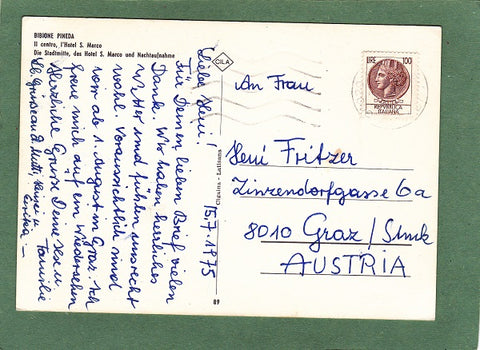 BIBIONE PINEDA
Il centro, l'Hotel S. Marco
Die Stadtmitte, das Hotel S. Marco und Nachtaufnahme
CILA
15.7.1975
Liebe Heni!
Für Deinen lieben Brief vielen
Dank. Wir haben herrliches
Wetter und fühlen uns recht
wohl. Voraussichtlich sind
wir ab 1. August in Graz. Ich
freue mich auf ein Wiedersehen
Herzliche Grüsse Deine
Familie
LIRE 100
REPUBBLICA
ITALIANA
An Frau
Heni Fritzer
Zinzendorfgasse 6a
8010 Graz/Stmk
AUSTRIA
89